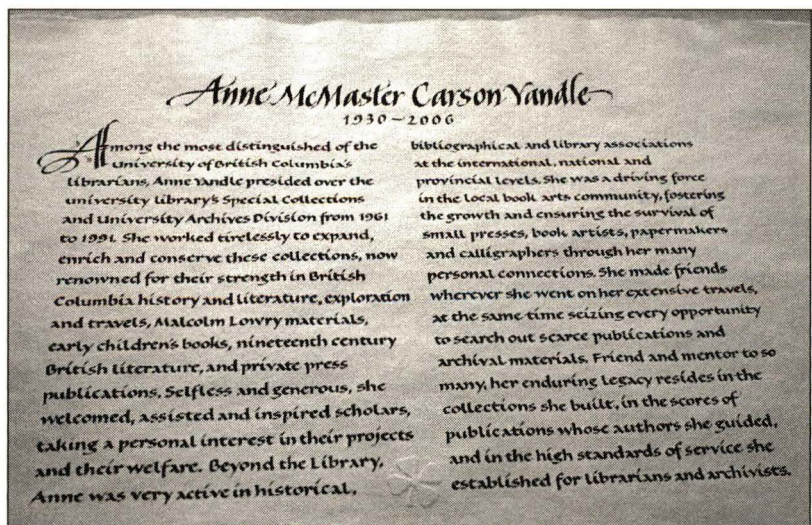 Anne McMaster Carson Yandle
1930–2006
Among the most distinguished of the
University of British Columbia's
librarians, Anne Yandle presided over the
university library's Special Collections
and University Archives Division from 1961
to 1991. She worked tirelessly to expand,
enrich and conserve these collections, now
renowned for their strength in British
Columbia history and literature, exploration
and travels, Malcolm Lowry materials,
early children's books, nineteenth century
British literature, and private press
publications. Selfless and generous, she
welcomed, assisted and inspired scholars,
taking a personal interest in their projects
and their welfare. Beyond the Library,
Anne was very active in historical,
bibliographical and library associations
at the international, national and
provincial levels. She was a driving force
in the local book arts community, fostering
the growth and ensuring the survival of
small presses, book artists, papermakers
and calligraphers through her many
personal connections. She made friends
wherever she went on her extensive travels,
at the same time seizing every opportunity
to search out scarce publications and
archival materials. Friend and mentor to so
many, her enduring legacy resides in the
collections she built, in the scores of
publications whose authors she guided,
and in the high standards of service she
established for librarians and archivists.